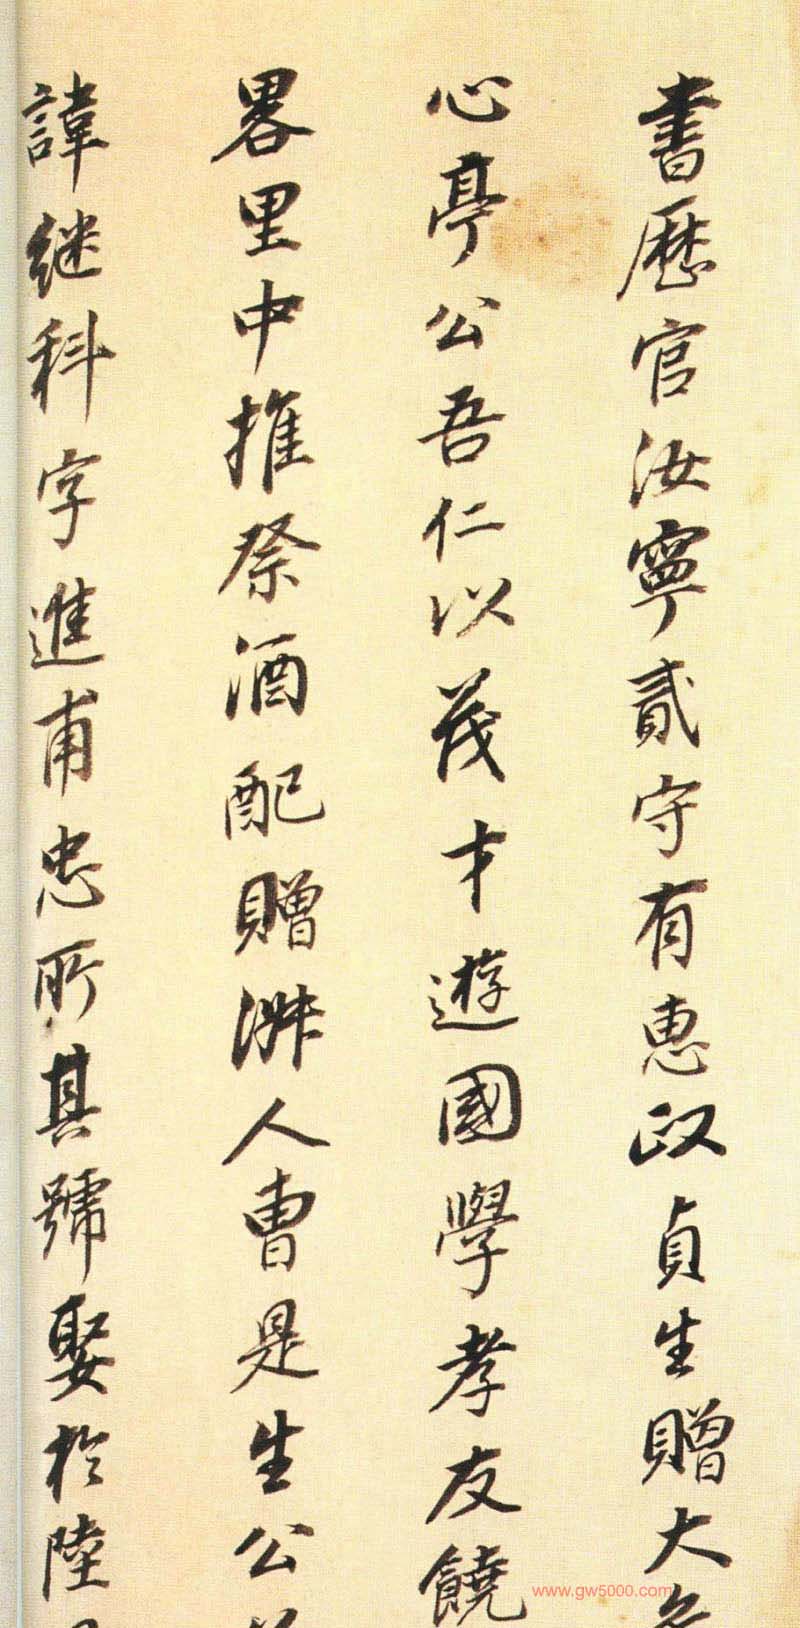 書歷官汝寧貳守有惠政貞生贈大
心亭公吾仁以茂才遊國學孝友饒
畧里中推祭酒配贈淑人曹是生公
諱継科字進甫忠所其號娶於陸
www.gw5000.com